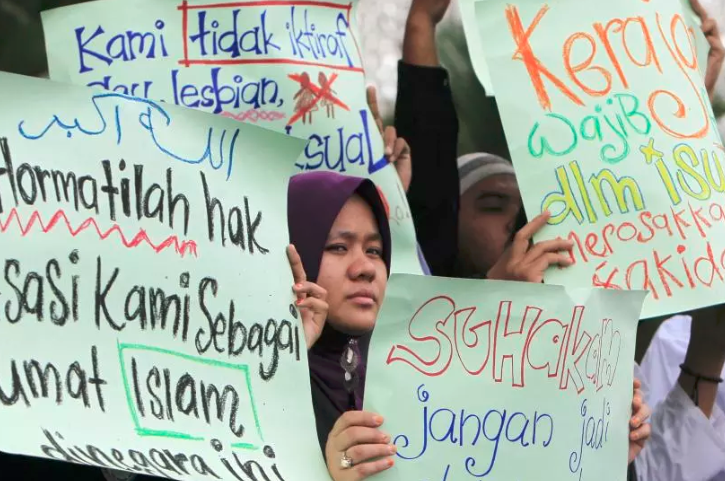 Kami tidak iktiraf
lesbian,
الله أكبر
Hormatilah hak
asasi Kami Sebagai
umat Islam
dinegara ini
Kerajaan
wajib
dlm isu
merosakka
akida
SUHAKAM
jangan jadi